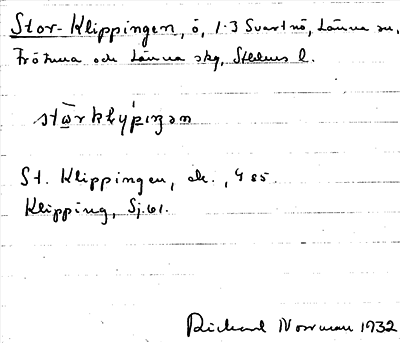 Stor-Klippingen, ö, 1·3 Svartnö, Länna sn,
Frötuna och Länna skg, Sthlms l.
St. Klippingen, ek., 485
Klipping, Sj.61.
Rickard Norrman 1932